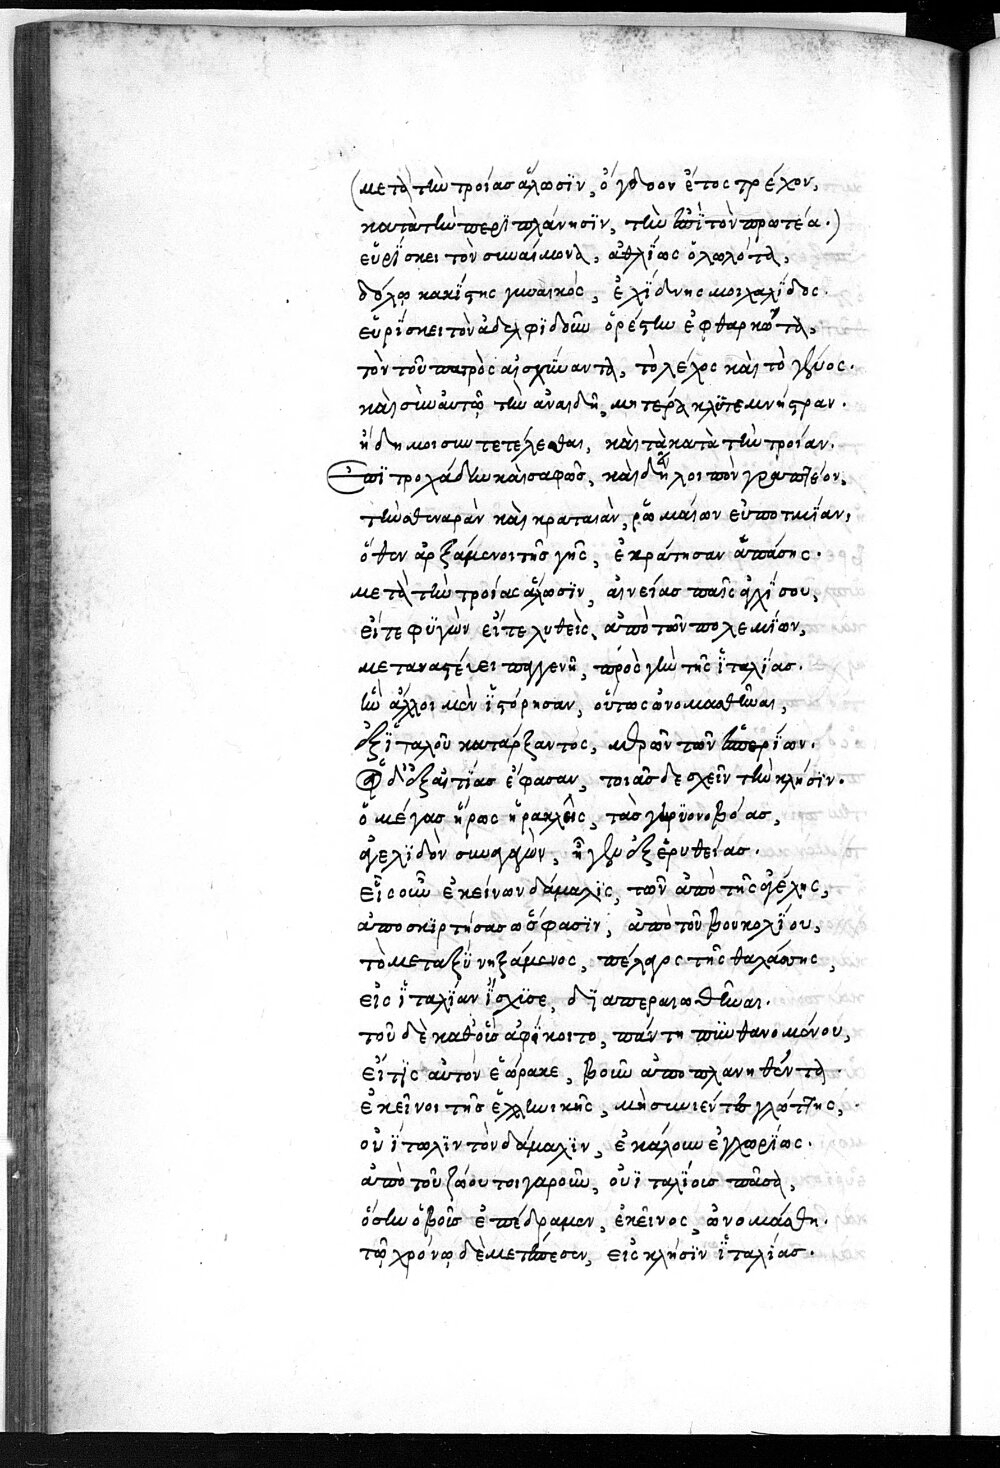 (μετὰ τὴν τροίας ἅλωσϊν, ὄγδοον ἔτος τρέχον,
κατὰ τὴν περϊπλάνησϊν, τὴν ἐπῒ τὸν πρωτέα.)
εὑρΐσκει τὸν συναίμονα, ἀθλΐως ὀλωλότα,
δόλῳ κακΐστης γυναικὸς, ἐχΐδνης μοιχαλΐδος.
εὑρΐσκει τὸν ἀδελφϊδοῦν ὀρέστην ἐφθαρκότα,
τὸν τοῦ πατρὸς αἰσχύναντα, τὸ λέχος καὶ τὸ γένος.
καὶ σὺν αὐτῷ τὴν ἀναιδῆ, μητέρα κλυτεμνήστραν.
ἤδη μοι συντετέλεσθαι, καὶ τὰ κατὰ τὴν τροίαν.
Ἐπϊτροχάδην καὶ σαφῶς, καὶ δὴ λοιπὸν γραπτέον,
τὴν σθεναρὰν καὶ κραταιὰν, ῥωμαίων εὐποτμΐαν,
ὅθεν ἀρξάμενοι τῆς γῆς, ἐκράτησαν ἁπάσης.
μετὰ τὴν τροίας ἅλωσϊν, αἰνείας παῖς ἀγχΐσου,
εἴτε φϋγὼν εἴτε λυθεὶς, ἀπὸ τῶν πολεμΐων,
μεταναστέυει παγγενῆ, πρὸς γῆν τῆς ἰταλΐας.
ἣν ἄλλοι μὲν ἱστόρησαν, οὕτως ὀνομασθῆναι,
ἐξ ἰταλοῦ κατάρξαντος, μερῶν τῶν ἑσπερΐων.
Οἱ δ' ἐξ αἰτΐας ἔφασαν, τοιᾶσδε σχεῖν τὴν κλῆσϊν.
ὁ μέγας ἥρως ἡρακλῆς, τὰς γηρϋονοβόας,
ἀγεληδὸν συναγαγὼν, ἦγεν ἐξ ἐρυθείας.
εἷς οὖν ἐκείνων δάμαλϊς, τῶν ἀπὸ τῆς ἀγέλης,
ἀποσκϊρτήσας ὥς φασϊν, ἀπὸ τοῦ βουκολΐου,
τὸ μεταξὺ νηξάμενος, πέλαγος τῆς θαλάσσης,
εἰς ἰταλΐαν ἴσχϋσε, δϊαπεραιωθῆναι.
τοῦ δὲ καθ' οὓς ἀφΐκοιτο, πάντη πϋνθανομένου,
εἴ τϊς αὐτὸν ἑώρακε, βοῦν ἀποπλανηθέντα.
ἐκεῖνοι τῆς ἑλληνικῆς, μὴ συνιέντες γλώττης,
οὐΐταλϊν τὸν δάμαλϊν, ἐκάλουν ἐγχωρΐως.
ἀπὸ τοῦ ζώου τοιγαροῦν, οὐϊταλΐοις πᾶσα,
ὅσην ὁ βοῦς ἐπέδραμεν, ἐκεῖνος, ὠνομάσθη.
τῷ χρόνῳ δὲ μετέπεσεν, εἰς κλῆσϊν ἰταλΐας.